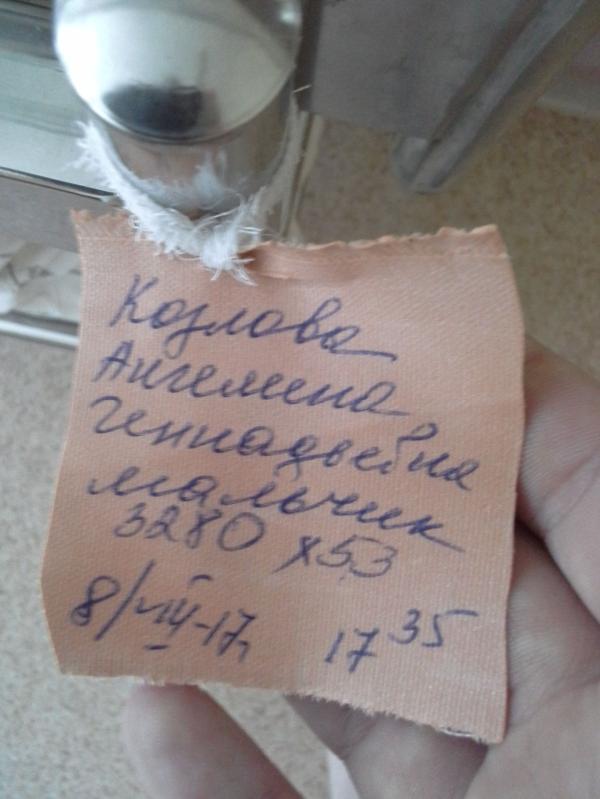 Козлова
Ангелина
Геннадьевна
мальчик
3280 х53
8/VIII-17г 17 35